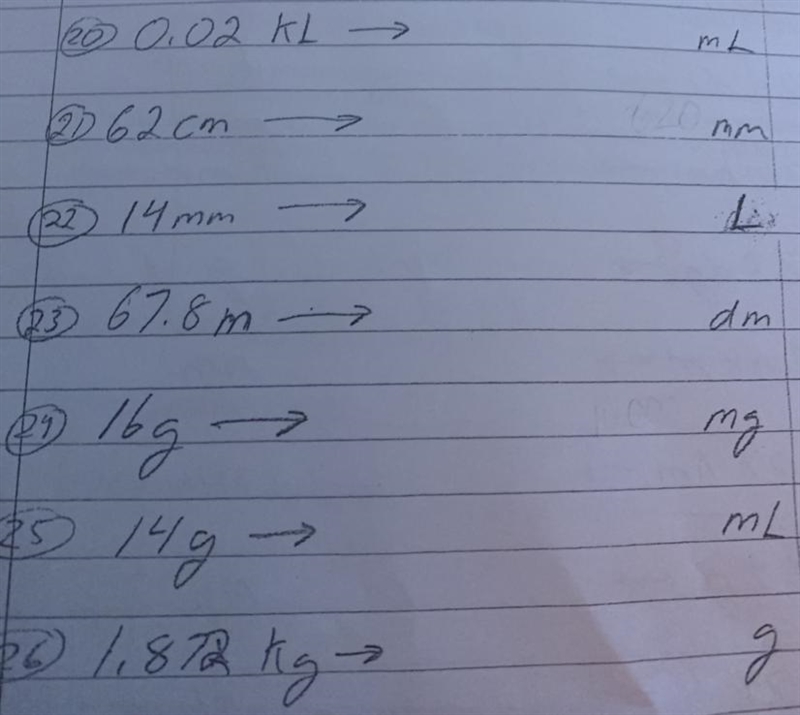 20 0.02 KL → mL
21 62 cm → mm
22 14 mm → L
23 67.8 m → dm
24 16g → mg
25 14g → mL
26 1.872 Kg → g